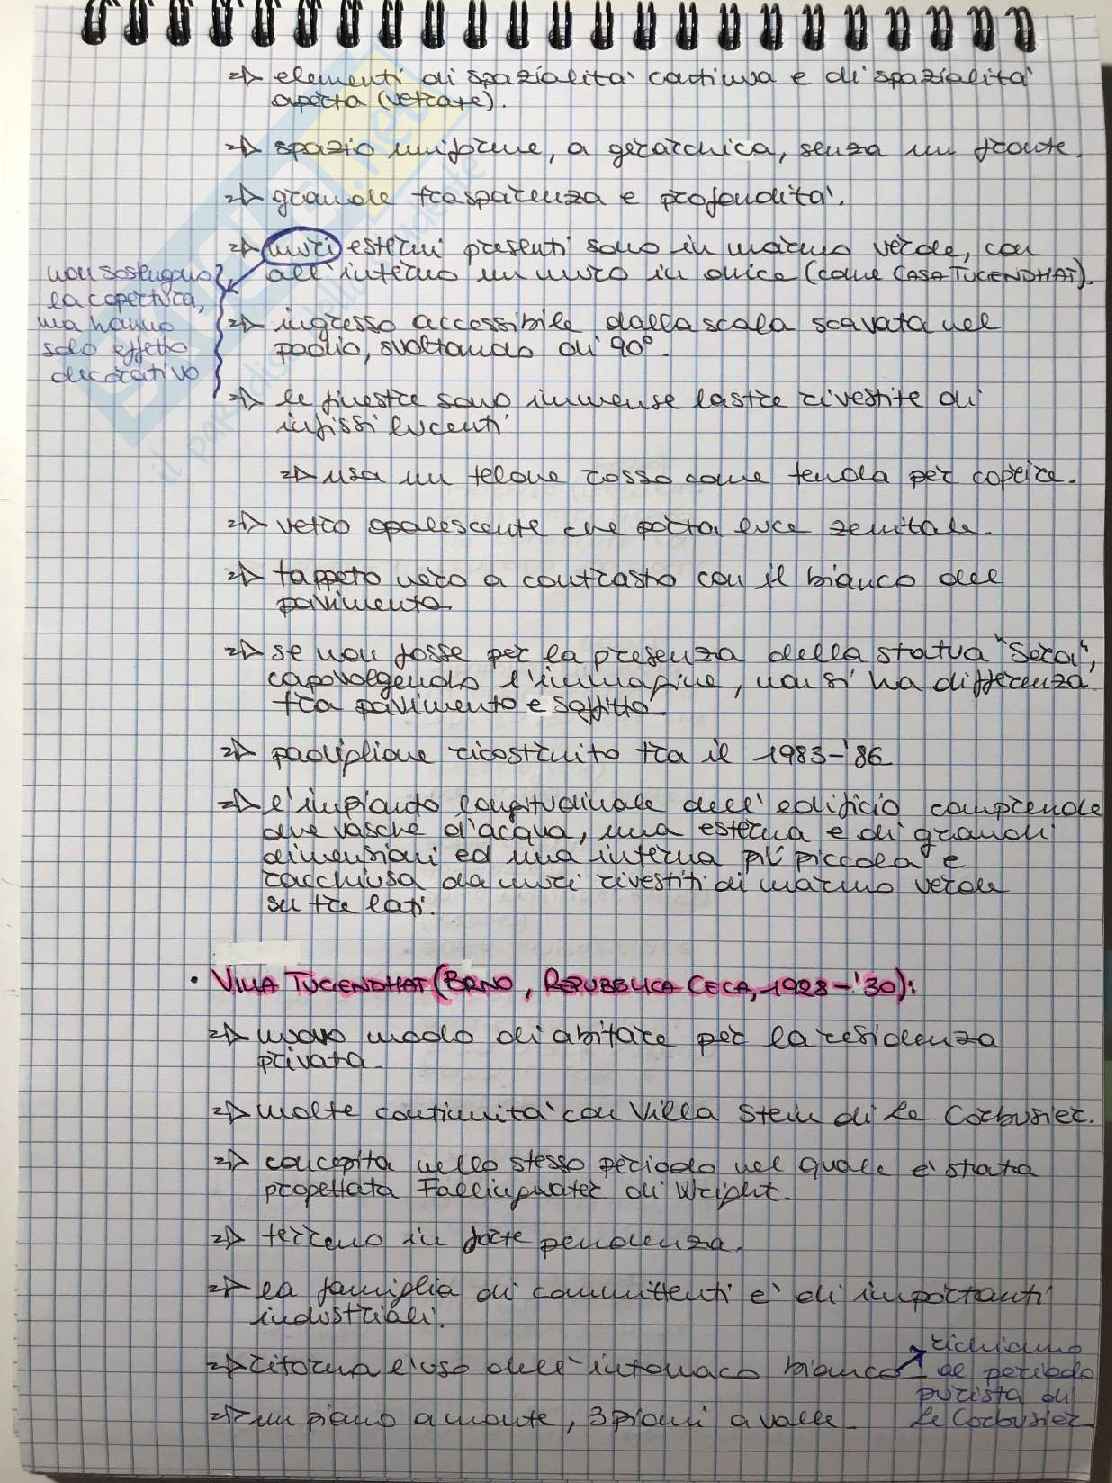 => elementi di spazialità continua e di spazialità
aperta (vetrate).
=> spazio uniforme, a gerarchica, senza un fronte.
=> grande trasparenza e profondità.
=> muri esterni presenti sono in marmo verde, con
all'interno un muro in onice (come CASA TUGENDHAT).
non sostengono
la copertura,
ma hanno
solo effetto
decorativo
=> ingresso accessibile dalla scala scavata nel
podio, svoltando di 90°.
=> le finestre sono immense lastre rivestite di
infissi lucenti
=> usa un telone rosso come tenda per coprire.
=> vetro opalescente che porta luce zenitale.
=> tappeto nero a contrasto con il bianco del
pavimento.
=> se non fosse per la presenza della statua "Sera",
capovolgendo l'immagine, non si ha differenza
tra pavimento e soffitto.
=> padiglione ricostruito tra il 1983-'86
=> l'impianto longitudinale dell'edificio comprende
due vasche d'acqua, una esterna e di grandi
dimensioni ed una interna più piccola e
racchiusa da muri rivestiti di marmo verde
su tre lati.
• VILLA TUGENDHAT (BRNO, REPUBBLICA CECA, 1928-'30):
=> nuovo modo di abitare per la residenza
privata.
=> molte continuità con Villa Stein di Le Corbusier.
=> concepita nello stesso periodo nel quale è stata
progettata Fallingwater di Wright.
=> terreno in forte pendenza.
=> la famiglia di committenti è di importanti
industriali.
=> ritorna l'uso dell'intonaco bianco
richiamo
al periodo
purista di
Le Corbusier
=> un piano a monte, 3 piani a valle.
SKUOLA.net
il paradiso dello studente